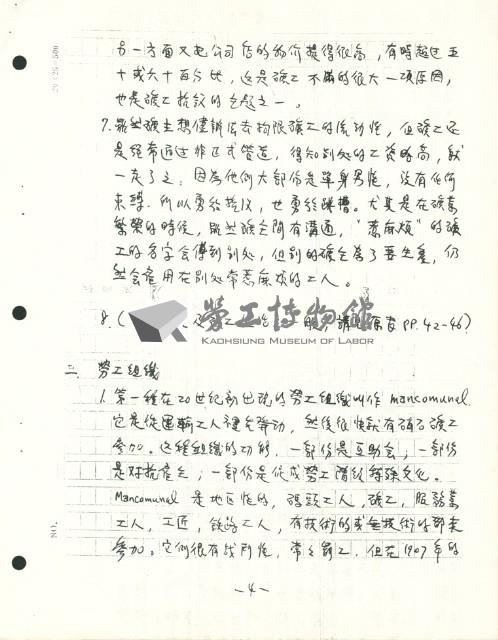 另一方面又把公司店的物價提得很高，有時超过五
十或六十百分比，这是礦工不滿的很大一項原因，
也是礦工抗議的主題之一。
7. 雖然礦主想僅辦法去拘限礦工的流動性，但礦工还
是經常通过非正式管道，得知別处的工資略高，就
一走了之。因為他們大部份是單身男性，沒有任何
束縛，所以勇於抗議，也勇於跳槽。尤其是在礦業
繁榮的時候，雖然礦主間有溝通，"惹麻煩"的礦
工的名字会傳到別处，但別的礦主為了要生產，仍
然会雇用在別处常惹麻煩的工人。
8.（ 請 原書 PP. 42-46）
勞工博物館
KAOHSIUNG MUSEUM OF LABOR
三 勞工組織
1. 第一種在20世紀初出現的勞工組織叫作 mancomunal.
它是從運輸工人裡先發動，然後很快就有硝石礦工
參加。这種組織的功能，一部份是互助会；一部份
是对抗產主；一部份是促成勞工階級 文化。
Mancomunal 是地区性的，碼頭工人，礦工，服務業
工人，工匠，鐵路工人，有技術的或無技術的都來
參加。它們很有战鬥性，常々罷工，但在1907年的
-4-
NO.